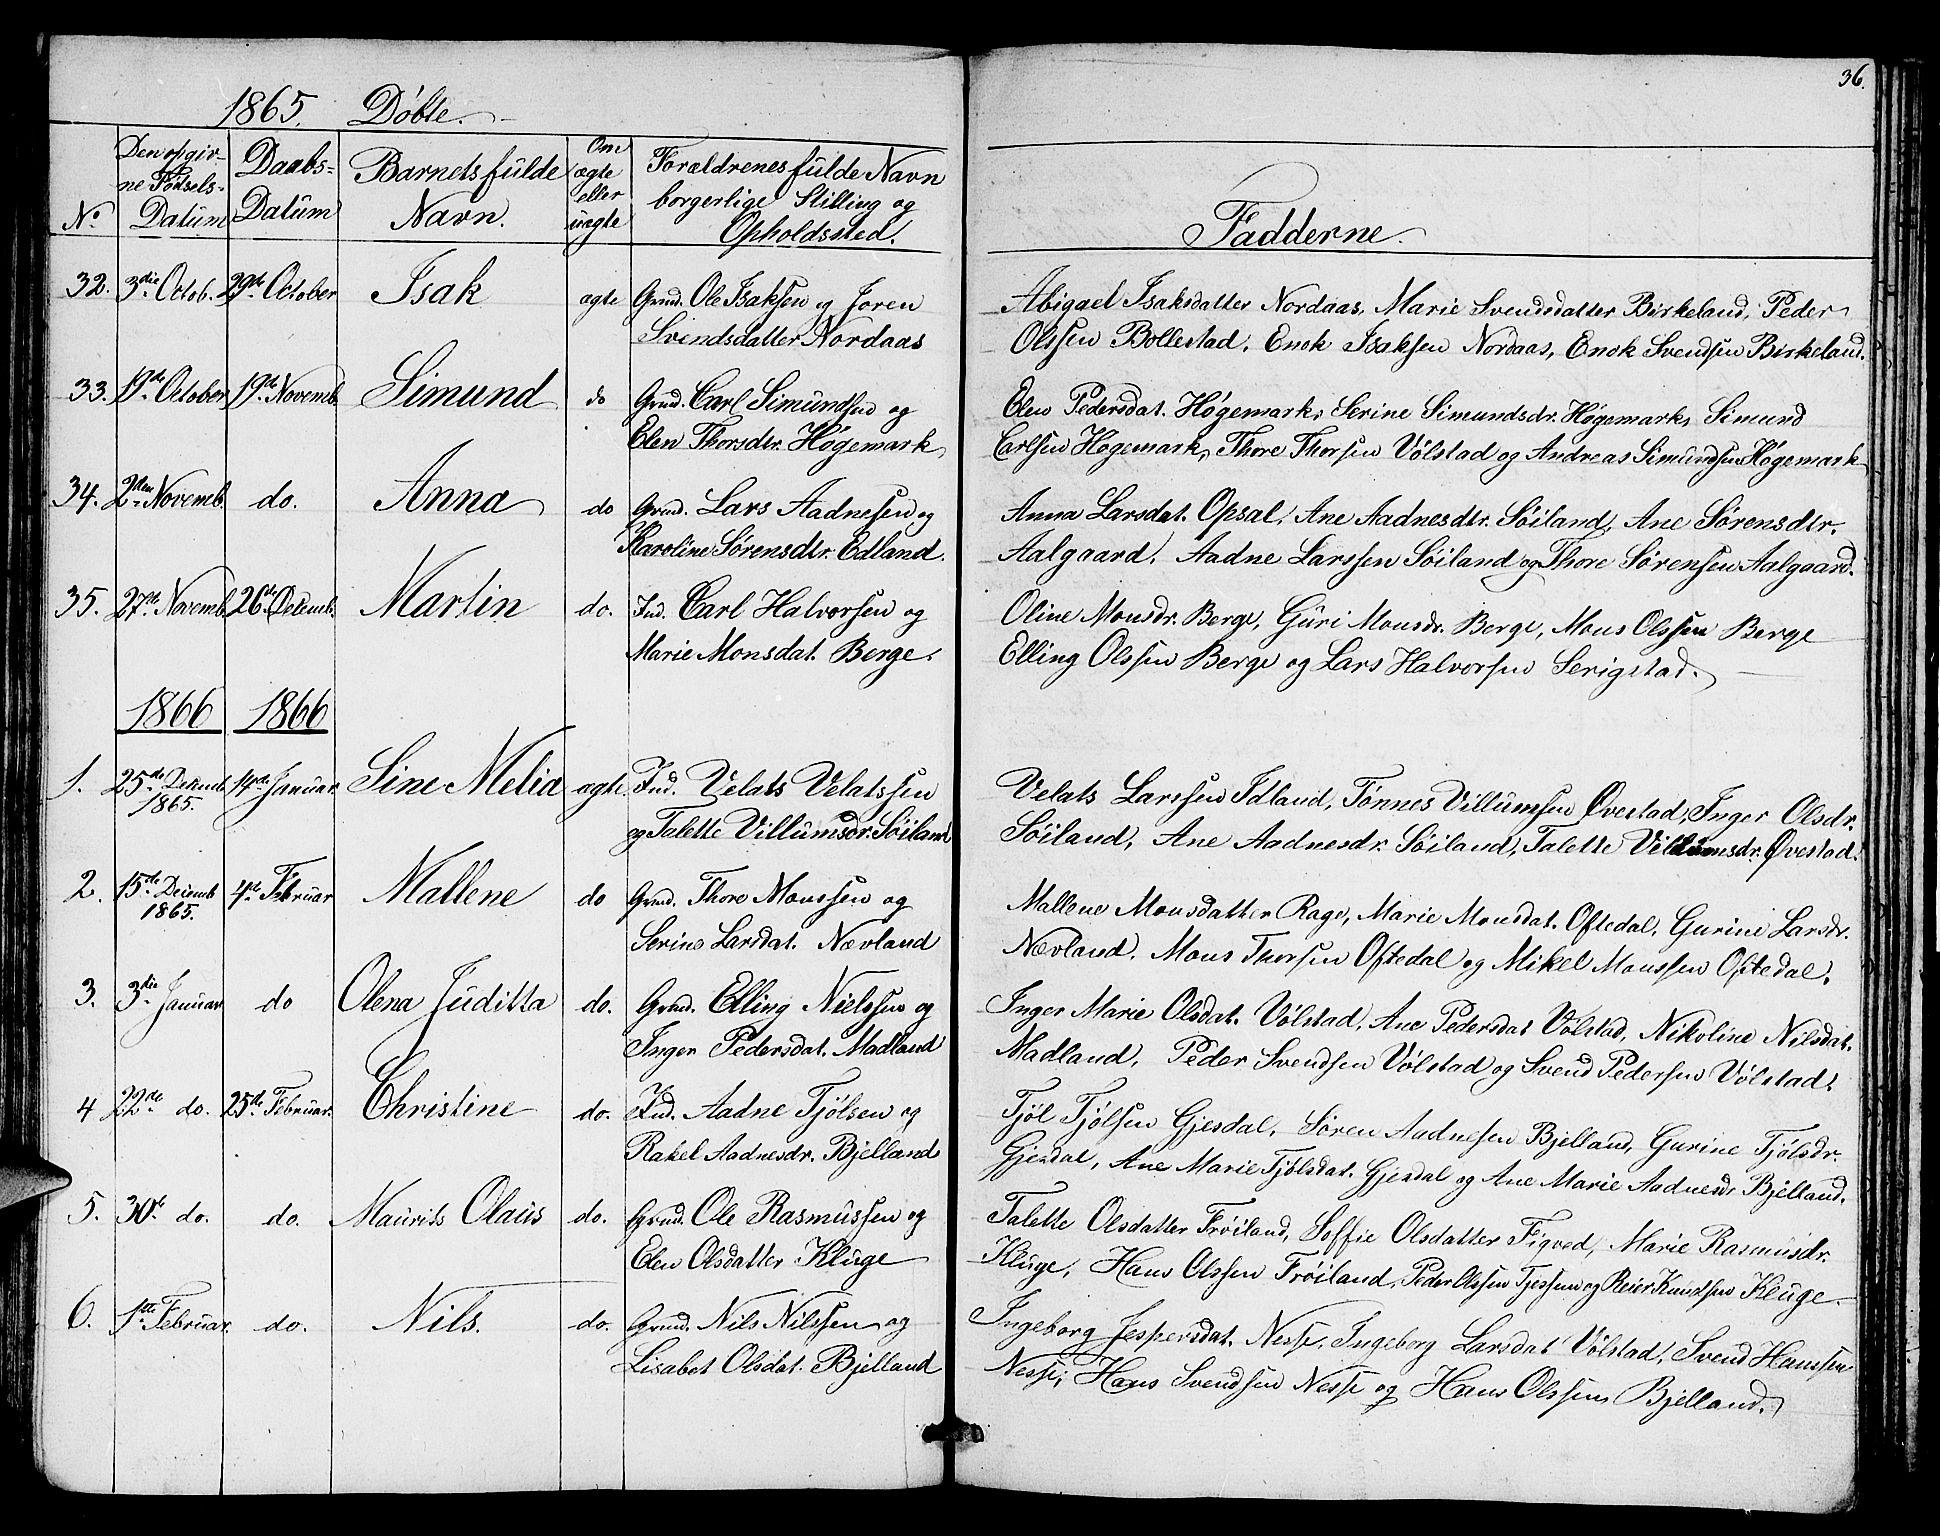 36.
1865. Döbte.
No
Den opgiv-
ne Fødsels-
Datum
Daabs-
Datum
Barnets fulde
Navn.
Om
ægte
eller
uægte
Forældrenes fulde Navn
borgerlige Stilling og
Opholdssted.
Fadderne.
32. 3die Octob. 29de October Isak agte Grmd. Ole Isaksen og Joren
Svendsdatter Nordaas
Abigael Isaksdatter Nordaas, Marie Svendsdatter Birkeland, Peder
Olssen Bollestad, Enok Isaksen Nordaas, Enok Svendsen Birkeland.
33. 19de October 19de Novemb. Simund do Grmd. Carl Simundsen og
Elen Thorsdtr. Høgemark
Elen Pedersdat. Høgemark, Serine Simundsdr. Høgemark, Simund
Carlsen Hogemark, Thore Thorsen Vølstad og Andreas Simundsen Høgemark
34. 2den Novemb. do. Anna do Grmd. Lars Aadnesen og
Karoline Sørensdtr. Edland.
Anna Larsdat. Opsal, Ane Aadnesdtr. Söiland, Ane Sørensdtr.
Aalgaard, Aadne Larssen Söiland og Thore Sørensen Aalgaard.
35. 27de Novemb. 26de Decemb. Martin do. Ind. Carl Halvorsen og
Marie Monsdat. Berge.
Oline Monsdr. Berge, Guri Monsdr. Berge, Mons Olssen Berge
Elling Olssen Berge og Lars Halvorsen Serigstad.
1866 1866
1. 25de Decemb. 1865. 14de Januar Sine Melia agte. Ind. Velats Velatssen
og Talette Villumsdr. Söiland
Velats Larssen Idland, Tønnes Villumssen Øvestad, Inger Olsdr.
Söiland, Ane Aadnesdr. Söiland, Talette Villumsdr. Øvestad.
2. 15de Decemb 1865. 4de Februar Mallene do Grmd. Thore Monssen og
Serine Larsdat. Nævland
Mallene Monsdatter Rage, Marie Monsdat. Oftedal, Gurine Larsdr.
Nævland, Mons Thorsen Oftedal og Mikel Monssen Oftedal.
3. 3die Januar do Olena Juditta do. Grmd. Elling Nielssen og
Inger Pedersdat. Madland
Inger Marie Olsdat. Vølstad, Ane Pedersdat Vølstad, Nikoline Nilsdat.
Madland, Peder Svendsen Vølstad og Svend Pedersen Vølstad.
4 22de do. 25de Februar. Christine do. Ind. Aadne Tjölsen og
Rakel Aadnesdr. Bjelland
Tjöl Tjölsen Gjesdal, Søren Aadnesen Bjelland, Gurine Tjölsdr.
Gjesdal, Ane Marie Tjölsdat. Gjesdal og Ane Marie Aadnesdr Bjelland.
5. 30te do. do. Maurits Olaus do. Grmd. Ole Rasmussen og
Elen Olsdatter Kluge
Talette Olsdatter Fröiland, Soffie Olsdatter Figved, Marie Rasmusdr.
Kluge, Hans Olssen Fröiland, Peder Olssen Tjessem og Reier Knudsen Kluge.
6. 1ste Februar. do. Nils. do. Grmd. Nils Nilssen og
Lisabet Olsdat. Bjelland
Ingeborg Jespersdat. Nesse, Ingeborg Larsdat Vølstad, Svend Hanssen
Nesse, Hans Svendsen Nesse og Hans Olssen Bjelland.